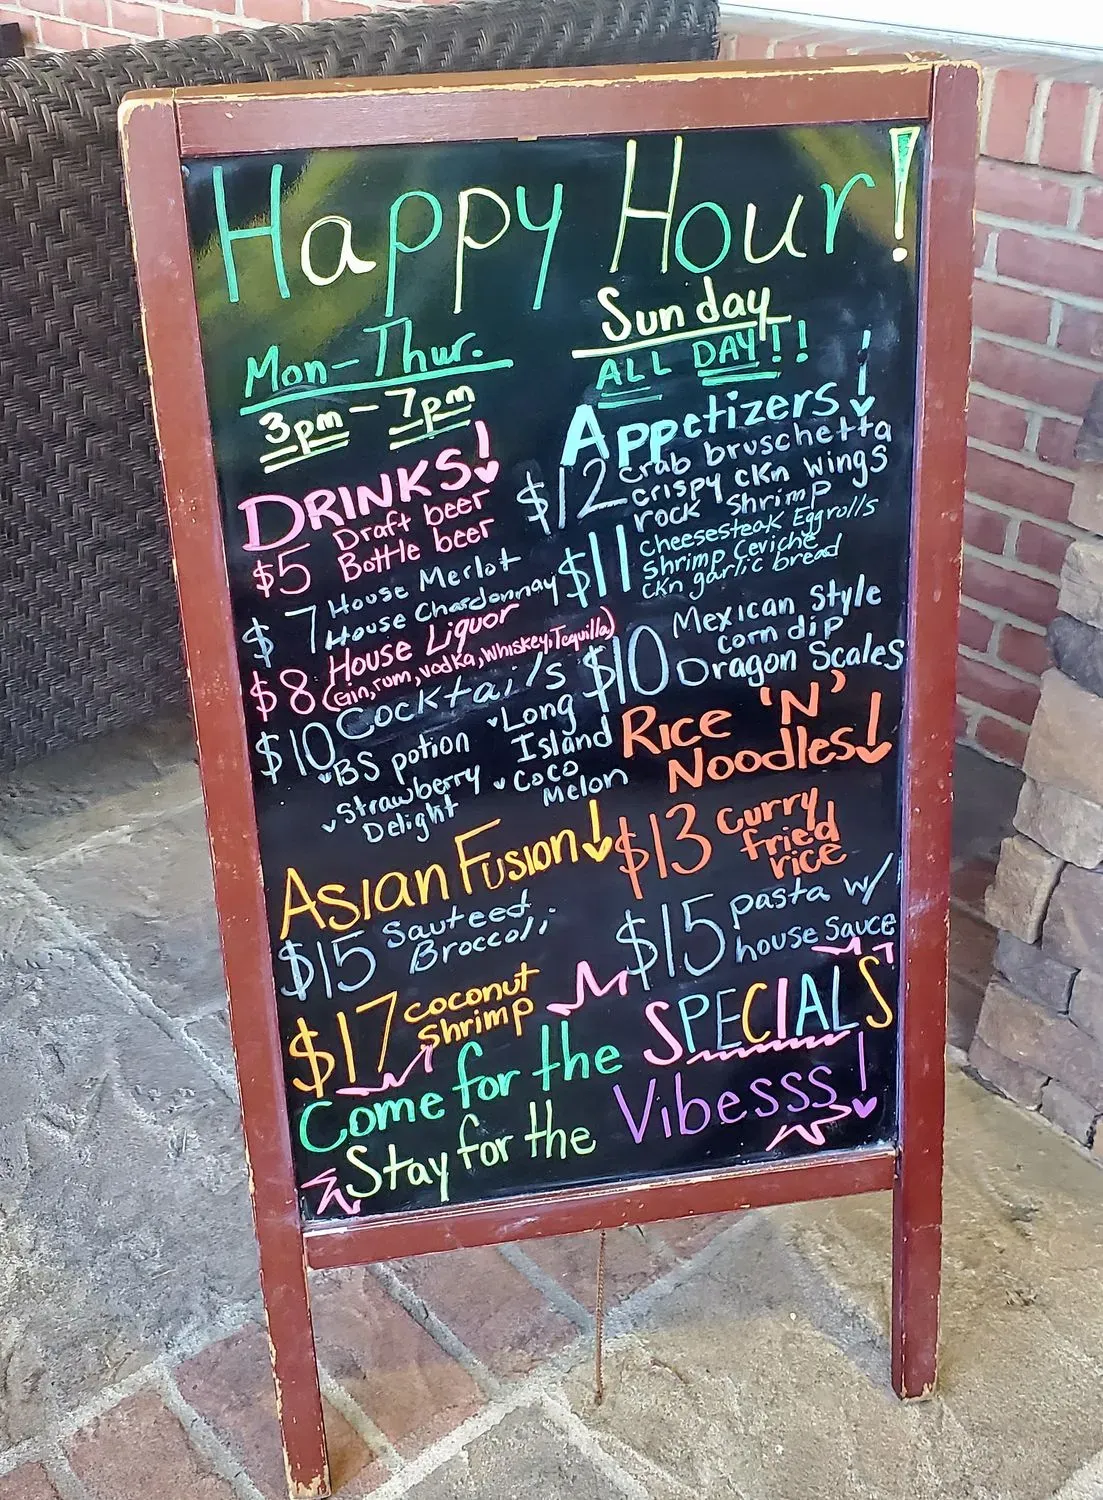 Happy Hour!
Mon-Thur.
3pm-7pm
Sunday
ALL DAY!!
DRINKS!
$5 Draft beer
Bottle beer
$7 House Merlot
House Chardonnay
$8 House Liquor
(Gin, rum, vodka, Whiskey, Tequilla)
$10 Cocktails
BS potion
Strawberry
Delight
Long
Island
Coco
Melon
Appetizers!
$12 crab bruschetta
crispy ckn wings
rock shrimp
$11 cheesesteak Eggrolls
Shrimp Ceviche
ckn garlic bread
$10 Mexican Style
corn dip
Dragon Scales
ASIAN FUSION!
$15 Sauteed
Broccoli
$17 coconut
shrimp
RICE 'N'
NOODLES!
$13 curry
fried
rice
$15 pasta w/
house Sauce
Come for the SPECIALS
Stay for the Vibesss!